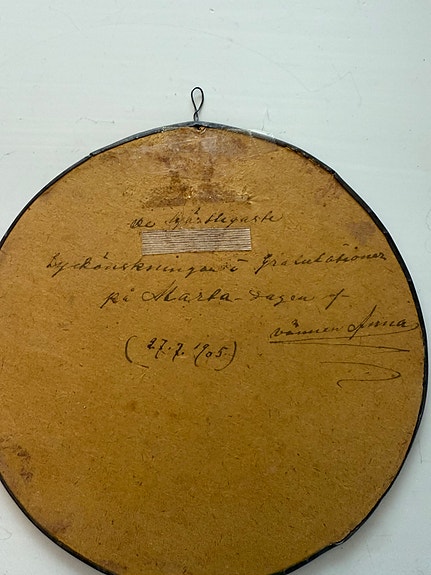 de hjärtligaste
lyckönskningar i Gratulationer
på Marta-dagen af
vännen Anna
(27.7.1905.)